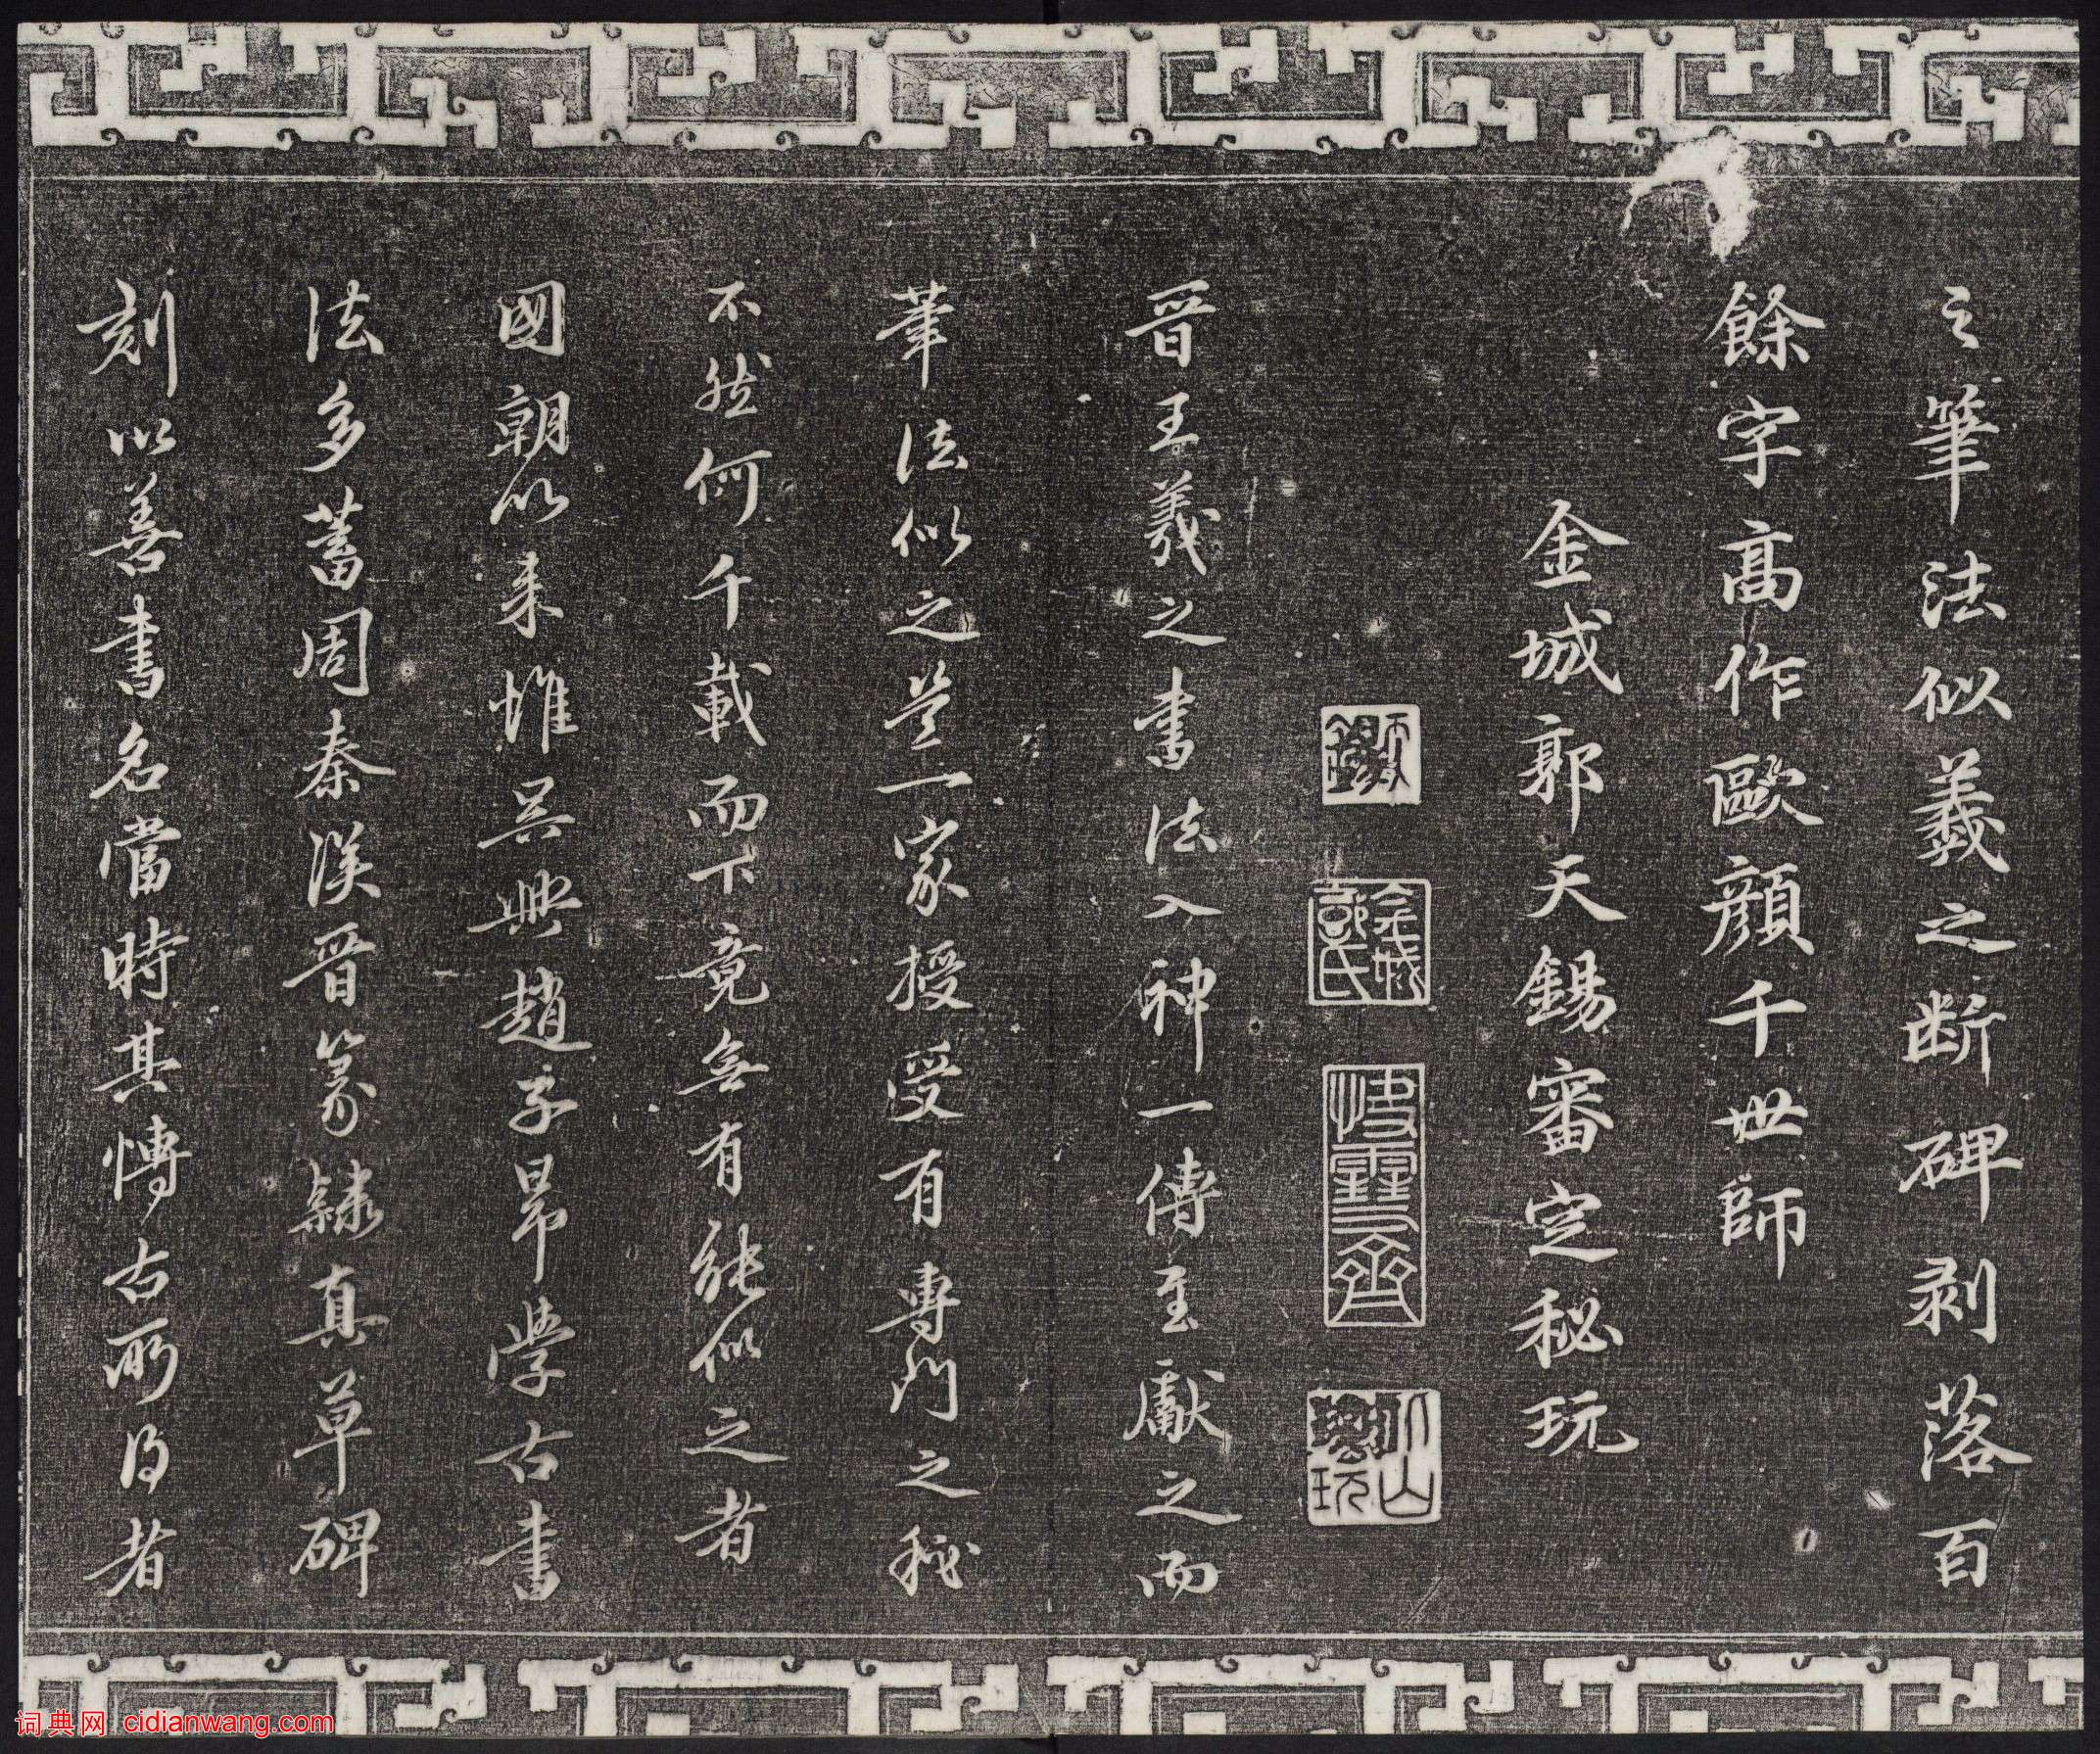 之筆法似羲之斷碑剥落百
餘字高作歐顔千世師
金城郭天錫審定秘玩
天錫
金城郭氏
快雪齋
晉王羲之書法入神一傳至獻之而
筆法似之是一家授受有專門之秘
不然何千載而下竟無有能似之者
國朝以来惟吴興趙子昂學古書
法多蓄周秦漢晉篆隸真草碑
刻以善書名當時其博古所得者
词典网 cidianwang.com